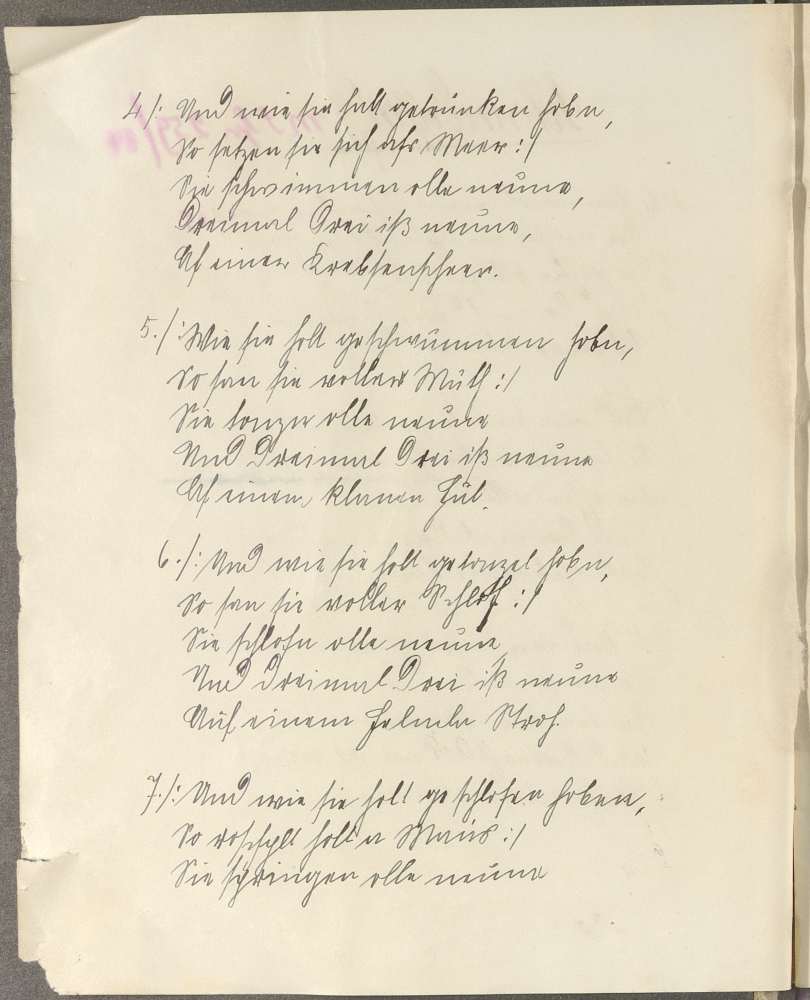 4/: Und wie sie halt getrunken hobn,
So setzen sie sich afs Meer :/
Sie schwimmen olle neune,
Dreimal Drei iß neune,
Af einer Krebsenscheer.
5./: Wie sie holt geschwummen hobn,
So san sie voller Muth :/
Sie tonzn olle neune
Und Dreimal Drei iß neune
Af einem klanen Hut.
6./: Und wie sie holt getonzet hobn,
So san sie voller Schlof :/
Sie schlofn olle neune
Und Dreimal Drei iß neune
Auf einem Halmeln Stroh.
7./: Und wie sie holt geschlofen hoben,
So roschplt holt a Maus :/
Sie springen olle neune